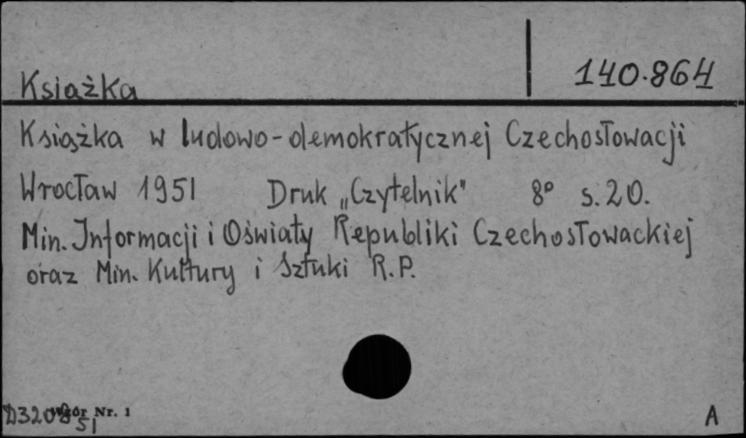 Książka
140.864
Książka w ludowo-demokratycznej Czechosłowacji
Wrocław 1951 Druk „Czytelnik" 8° s. 20.
Min. Informacji i Oświaty Republiki Czechosłowackiej
oraz Min. Kultury i Sztuki R.P.
Wzór Nr. 1
A